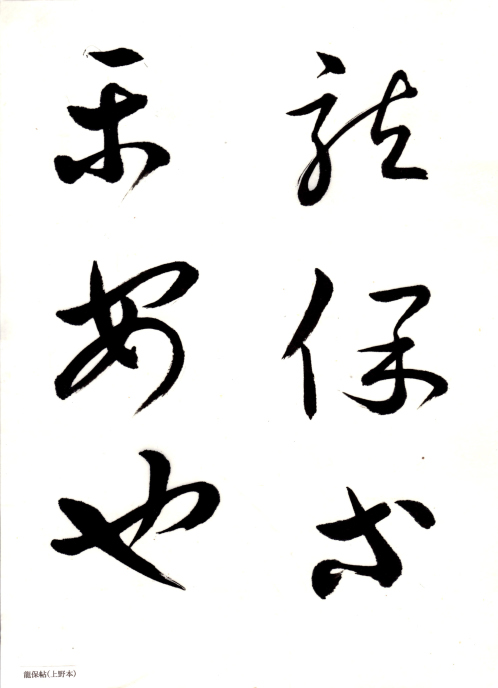 龍保等
平安也
龍保帖(上野本)